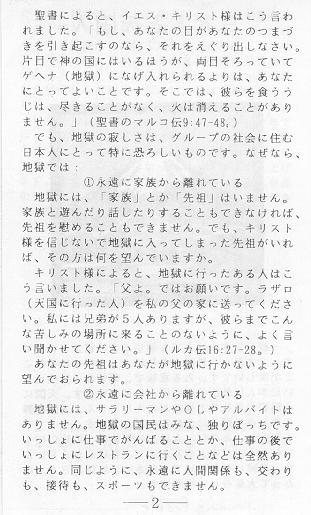 聖書によると、イエス・キリスト様はこう言わ
れました。「もし、あなたの目があなたのつまづ
きを引き起こすのなら、それをえぐり出しなさい。
片目で神の国にはいるほうが、両目そろっていて
ゲヘナ（地獄）になげ入れられるよりは、あなた
にとってよいことです。そこでは、彼らを食うう
じは、尽きることがなく、火は消えることがあり
ません。」（聖書のマルコ伝9:47-48。）
でも、地獄の寂しさは、グループの社会に住む
日本人にとって特に恐ろしいものです。なぜなら、
地獄では：
①永遠に家族から離れている
地獄には、「家族」とか「先祖」はいません。
家族と遊んだり話したりすることもできなければ、
先祖を慰めることもできません。でも、キリスト
様を信じないで地獄に入ってしまった先祖がいれ
ば、その方は何を望んでいますか。
キリスト様によると、地獄に行ったある人はこ
う言いました。「父よ。ではお願いです。ラザロ
（天国に行った人）を私の父の家に送ってくださ
い。私には兄弟が５人ありますが、彼らまでこん
な苦しみの場所に来ることのないように、よく言
い聞かせてください。」（ルカ伝16:27-28。）
あなたの先祖はあなたが地獄に行かないように
望んでおられます。
②永遠に会社から離れている
地獄には、サラリーマンやＯＬやアルバイトは
ありません。地獄の国民はみな、独りぼっちです。
いっしょに仕事でがんばることとか、仕事の後で
いっしょにレストランに行くことなどは全然あり
ません。同じように、永遠に人間関係も、交わり
も、接待も、スポーツもできません。
―2―